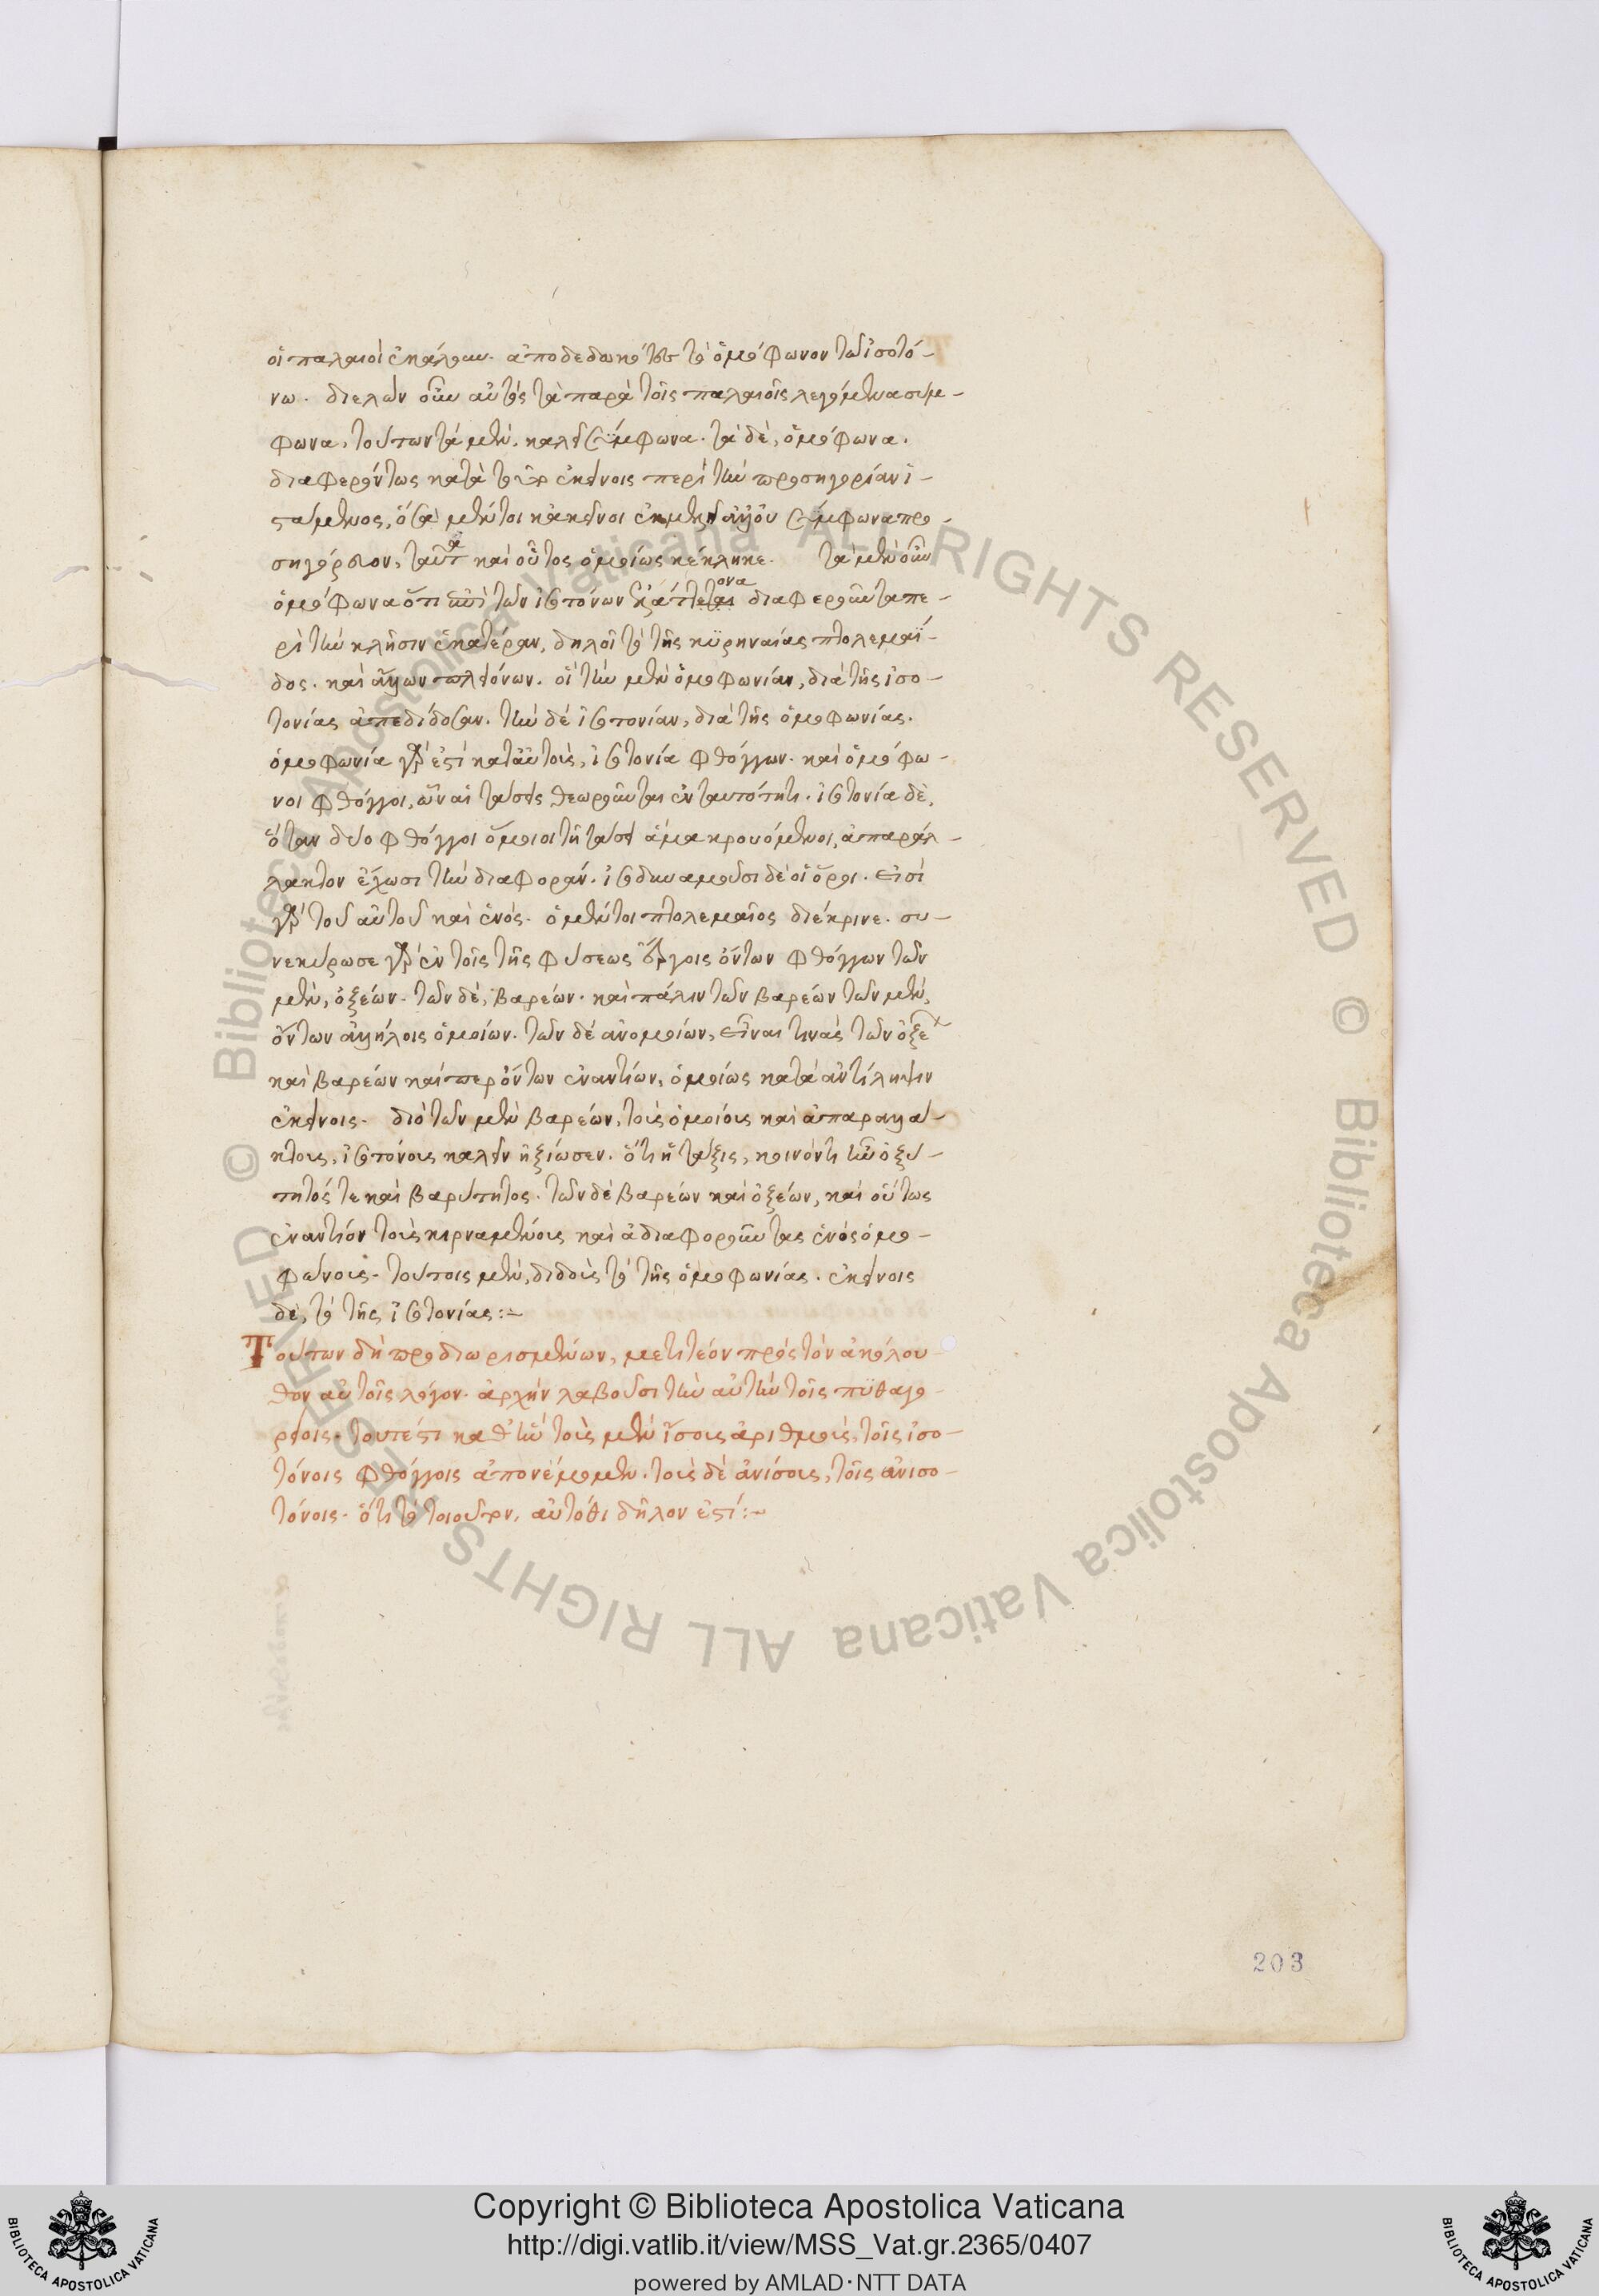 οἱ παλαιοὶ ἐκάλουν. ἀποδεδωκότες τὸ ὁμόφωνον τῶ ἰσοτό-
νω. διελὼν οὖν αὐτὸς τὰ παρὰ τοῖς παλαιοῖς λεγόμενα σύμ-
φωνα, τούτων τὰ μὲν, καλεῖ σύμφωνα. τὰ δὲ, ὁμόφωνα.
διαφερόντως κατὰ τοῦτο ἐκείνοις περὶ τὴν προσηγορίαν ἱ-
στάμενος, ὅσα μέντοι κἀκεῖνοι σύμφωνα προ-
σηγόρευον, ταῦτα καὶ οὗτος ὁμοίως κέκληκε. τὰ μὲν οὖν
ὁμόφωνα ὅτι ἐπὶ τῶν ἰσοτόνων διαφεροῦντα πε-
ρὶ τὴν κλῆσιν ἑκατέραν, δηλοῖ τὸ τῆς κυρηναίας πτολεμαΐ-
δος. καὶ ἄλλων πλειόνων. οἳ τὴν μὲν ὁμοφωνίαν, διὰ τῆς ἰσο-
τονίας ἀπεδίδοσαν. τὴν δὲ ἰσοτονίαν, διὰ τῆς ὁμοφωνίας.
ὁμοφωνία γάρ ἐστι κατ' αὐτοὺς, ἰσοτονία φθόγγων. καὶ ὁμόφω-
νοι φθόγγοι, ὧν αἱ τάσεις θεωροῦνται ἐν ταυτότητι. ἰσοτονία δὲ,
ὅταν δύο φθόγγοι ὅμοιοι τῆ τάσει ἅμα κρουόμενοι, ἀπαράλ-
λακτον ἔχωσι τὴν διαφοράν. ἰσοδυναμοῦσι δὲ οἱ ὅροι. εἰσὶ
γὰρ τοῦ αὐτοῦ καὶ ἑνός. ὁ μέντοι πτολεμαῖος διέκρινε. συ-
νεκύρωσε γὰρ ἐν τοῖς τῆς φύσεως ἔργοις ὄντων φθόγγων τῶν
μὲν, ὀξέων. τῶν δὲ, βαρέων. καὶ πάλιν τῶν βαρέων τῶν μὲν,
ὄντων ἀλλήλοις ὁμοίων. τῶν δὲ ἀνομοίων, εἶναι τινὰς τῶν ὀξέων
καὶ βαρέων καίπερ ὄντων ἐναντίων, ὁμοίως κατὰ ἀντίληψιν
ἐκείνοις. διὸ τῶν μὲν βαρέων, τοὺς ὁμοίους καὶ ἀπαραλλά-
κτους, ἰσοτόνους καλεῖν ἠξίωσεν. ὅτι ἡ τάξις, κοινόν τι ἦν ὀξύ-
τητός τε καὶ βαρύτητος. τῶν δὲ βαρέων καὶ ὀξέων, καὶ οὕτως
ἐναντίον τοὺς κιρναμένους καὶ ἀδιαφοροῦντας ἑνὸς ὁμο-
φώνους. τούτοις μὲν, διδοὺς τὸ τῆς ὁμοφωνίας. ἐκείνοις
δὲ, τὸ τῆς ἰσοτονίας:-
Τούτων δὴ προδιωρισμένων, μετιτέον πρὸς τὸν ἀκόλου-
θον αὐτοῖς λόγον. ἀρχὴν λαβοῦσι τὴν αὐτὴν τοῖς πυθαγο-
ρείοις. τουτέστι καθ' ἣν τοὺς μὲν ἴσους ἀριθμοὺς, τοῖς ἰσο-
τόνοις φθόγγοις ἀπονέμομεν. τοὺς δὲ ἀνίσους, τοῖς ἀνισο-
τόνοις. ὅτι τὸ τοιοῦτον, αὐτόθι δῆλον ἐστί:-
203
Copyright © Biblioteca Apostolica Vaticana
http://digi.vatlib.it/view/MSS_Vat.gr.2365/0407
powered by AMLAD·NTT DATA